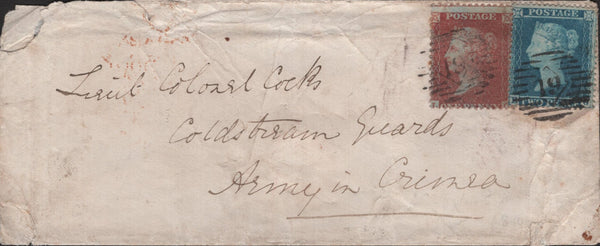 POSTAGE POSTAGE
Lieut Colonel Cocks
Coldstream Guards
Army in Crimea